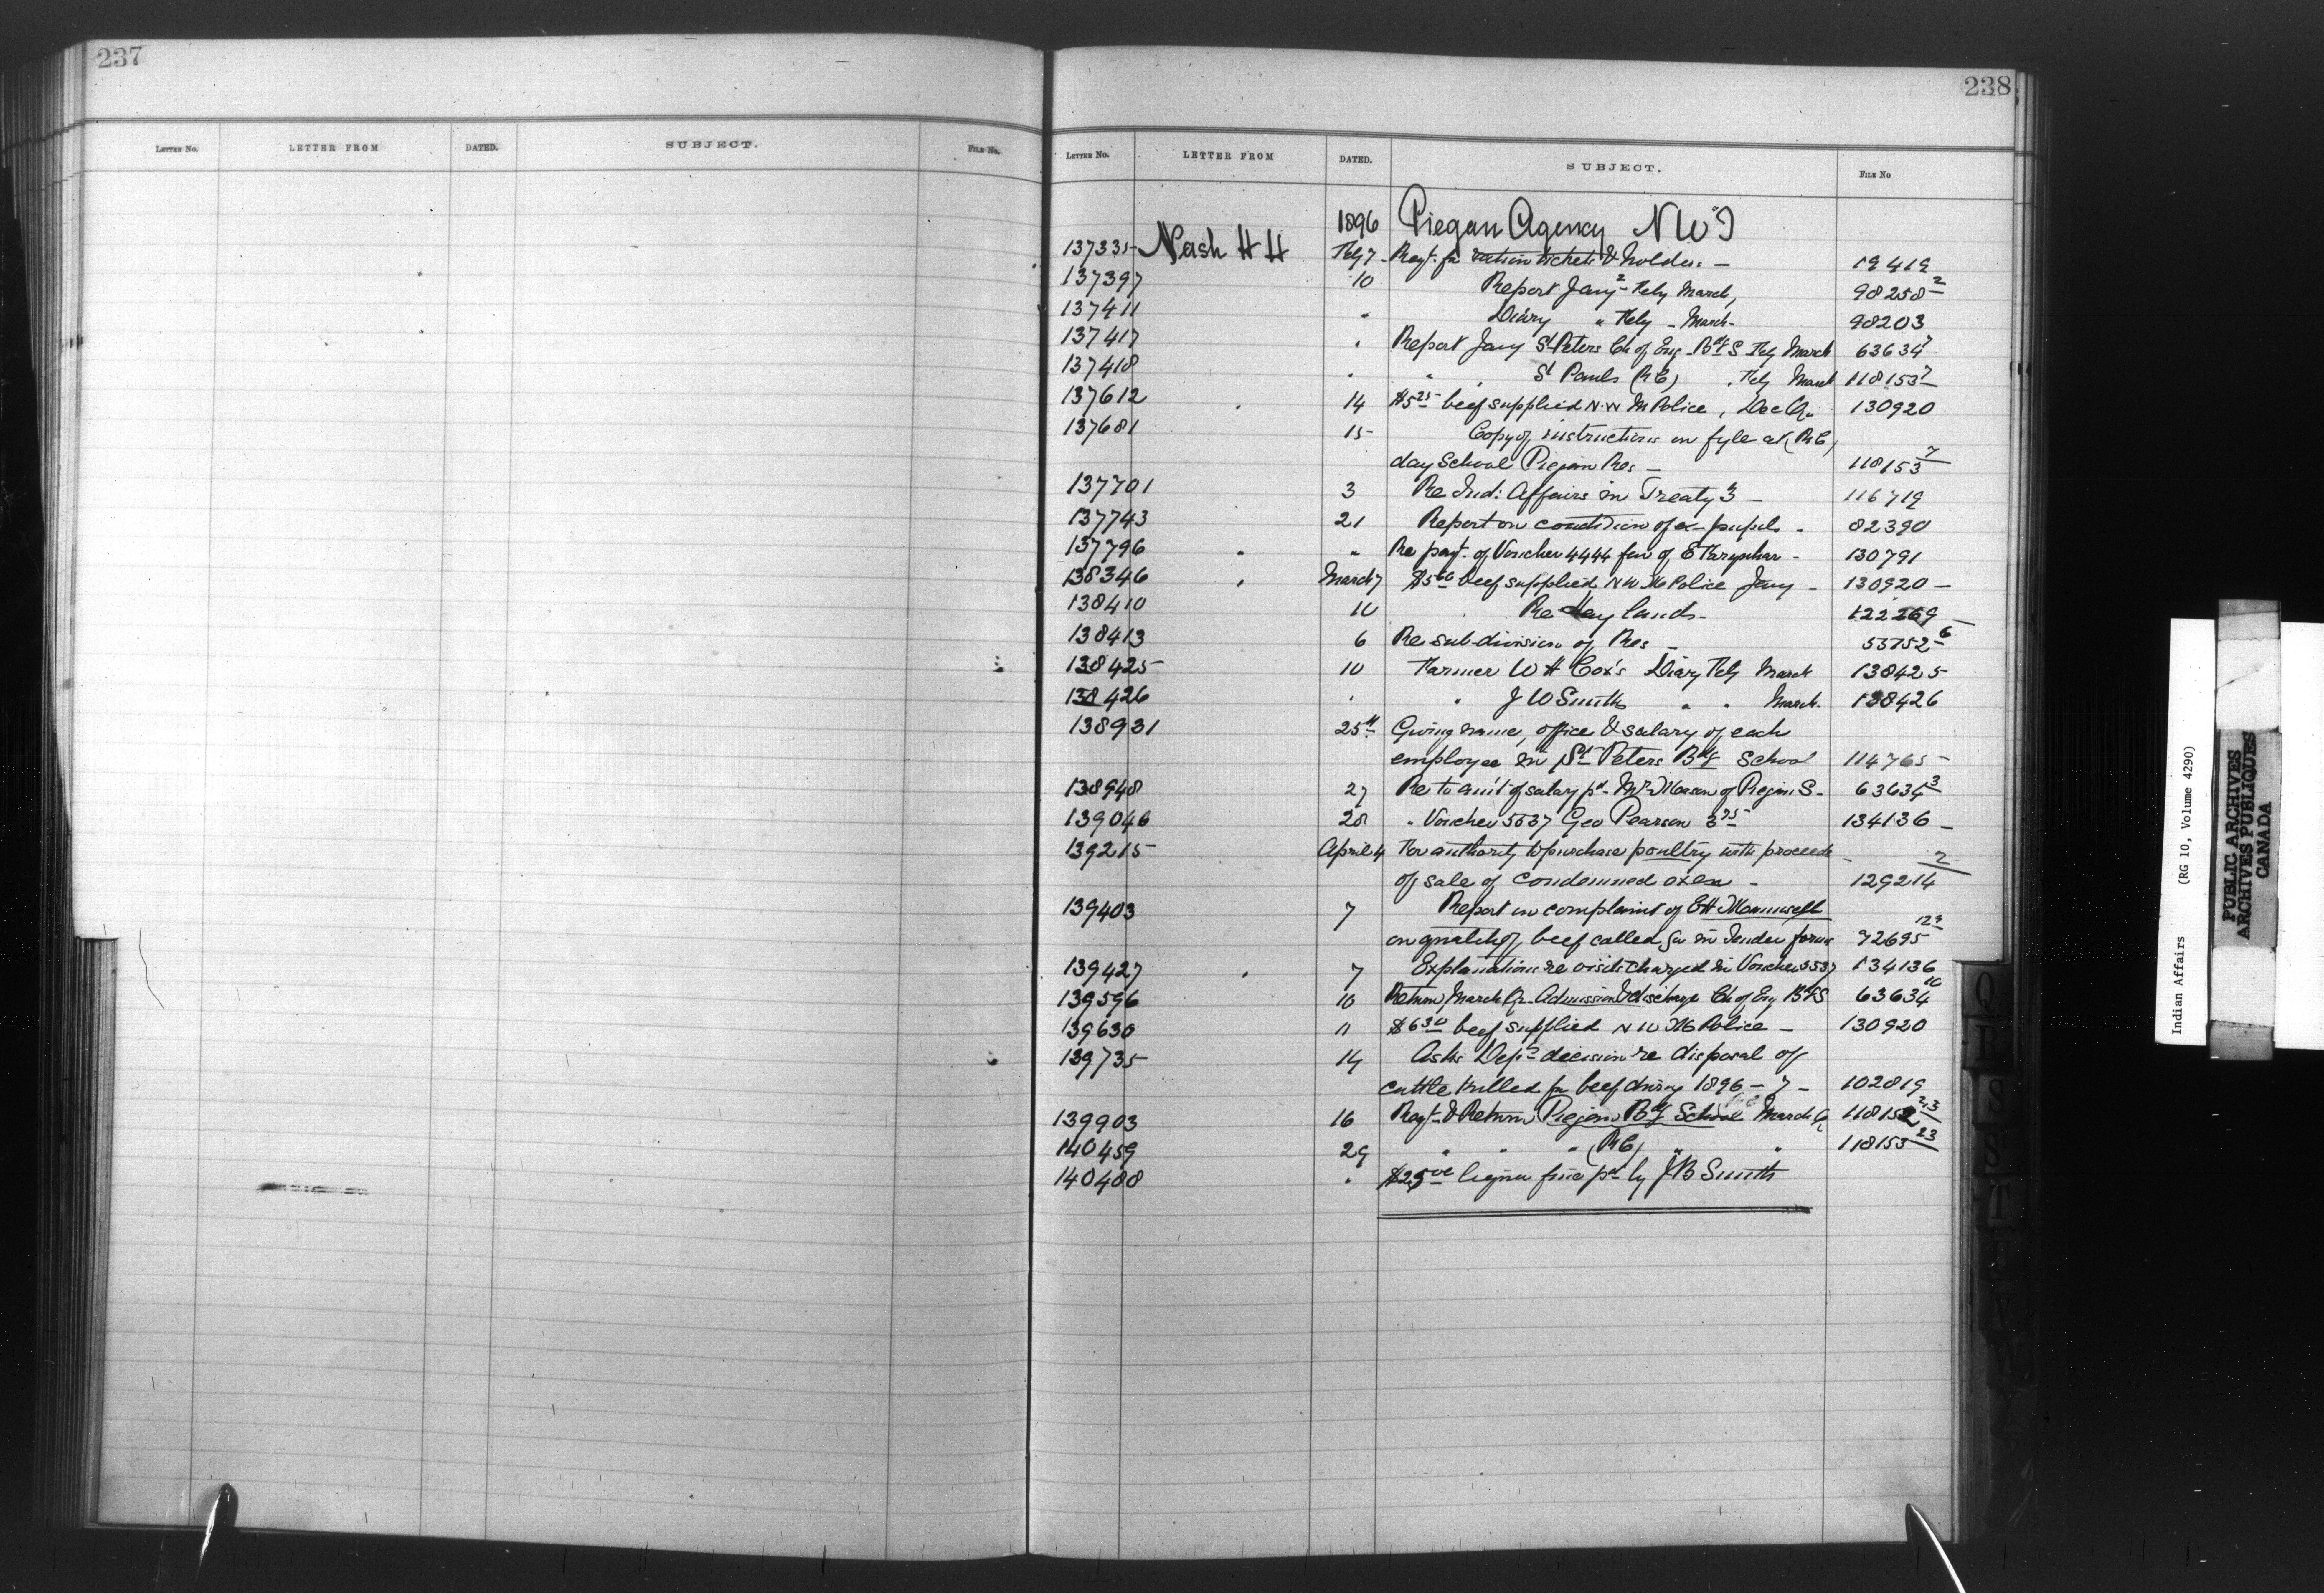 237
LETTER NO. LETTER FROM DATED. SUBJECT. FILE No.
238
LETTER NO. LETTER FROM DATED. SUBJECT. FILE No
1896 Piegan Agency NWT
137335 Nash H H Feby 7 Reqt. for ration tickets & holders — 19419
137397 10 Report Jany - Feby March, 98258 2
137411 " Diary " Feby - March - 98203
137417 " Report Jany St Peters Ch of Eng Bdg S Feby March 63634 7
137418 " " " St Pauls (RC) " Feby March 118153 7
137612 " 14 $5 25 beef supplied N.W M Police, Dec Qr 130920
137681 15 Copy of instructions on fyle at (RC)
day School Piegan Res — 118153 7
137701 3 Re Ind: Affairs in Treaty 3 — 116719
137743 21 Report on condition of ex-pupils - 82390
137796 " " Re payt. of Voucher 4444 fav of E 130791
138346 " March 7 $5 beef supplied N W M Police Jany - 130920 —
138410 10 Re Hay lands - 122269 —
138413 6 Re sub-division of Res — 55752 6
138425 10 Farmer W H Cox's Diary Feby March 138425
138426 " " J W Smith " " March. 138426
138931 25th Giving name, office & salary of each
employee in St Peters Bdg School 114765 -
138948 27 Re to am't of salary pd - Mr of Piegan S - 63634 3
139046 28 " Voucher 5537 Geo Pearson 3 75 134136 —
139215 April 4 For authority to purchase poultry with proceeds —
of sale of condemned oxen - 129214 2
139403 7 Report on complaint of E H Maunsell
on quality of beef called for in Tender forms 92695 12
139427 " 7 Explanations re visits charged in Voucher 5537 134136
139596 10 Return March Qr Admission & discharge Ch of Eng Bdg S 63634 10
139630 11 $6 30 beef supplied N W M Police — 130920
139735 14 Asks Dep's decision re disposal of
cattle killed for beef during 1896 - 7 - 102819
139903 16 Reqt & Return Piegan Bdg School March Qr 118152 23
140459 29 " " " (RC) " " 118153 23
140488 " $25 00 liquor fine pd by J B Smith
Indian Affairs (RG 10, Volume 4290)
PUBLIC ARCHIVES
ARCHIVES PUBLIQUES
CANADA
Q
R
S
S
T